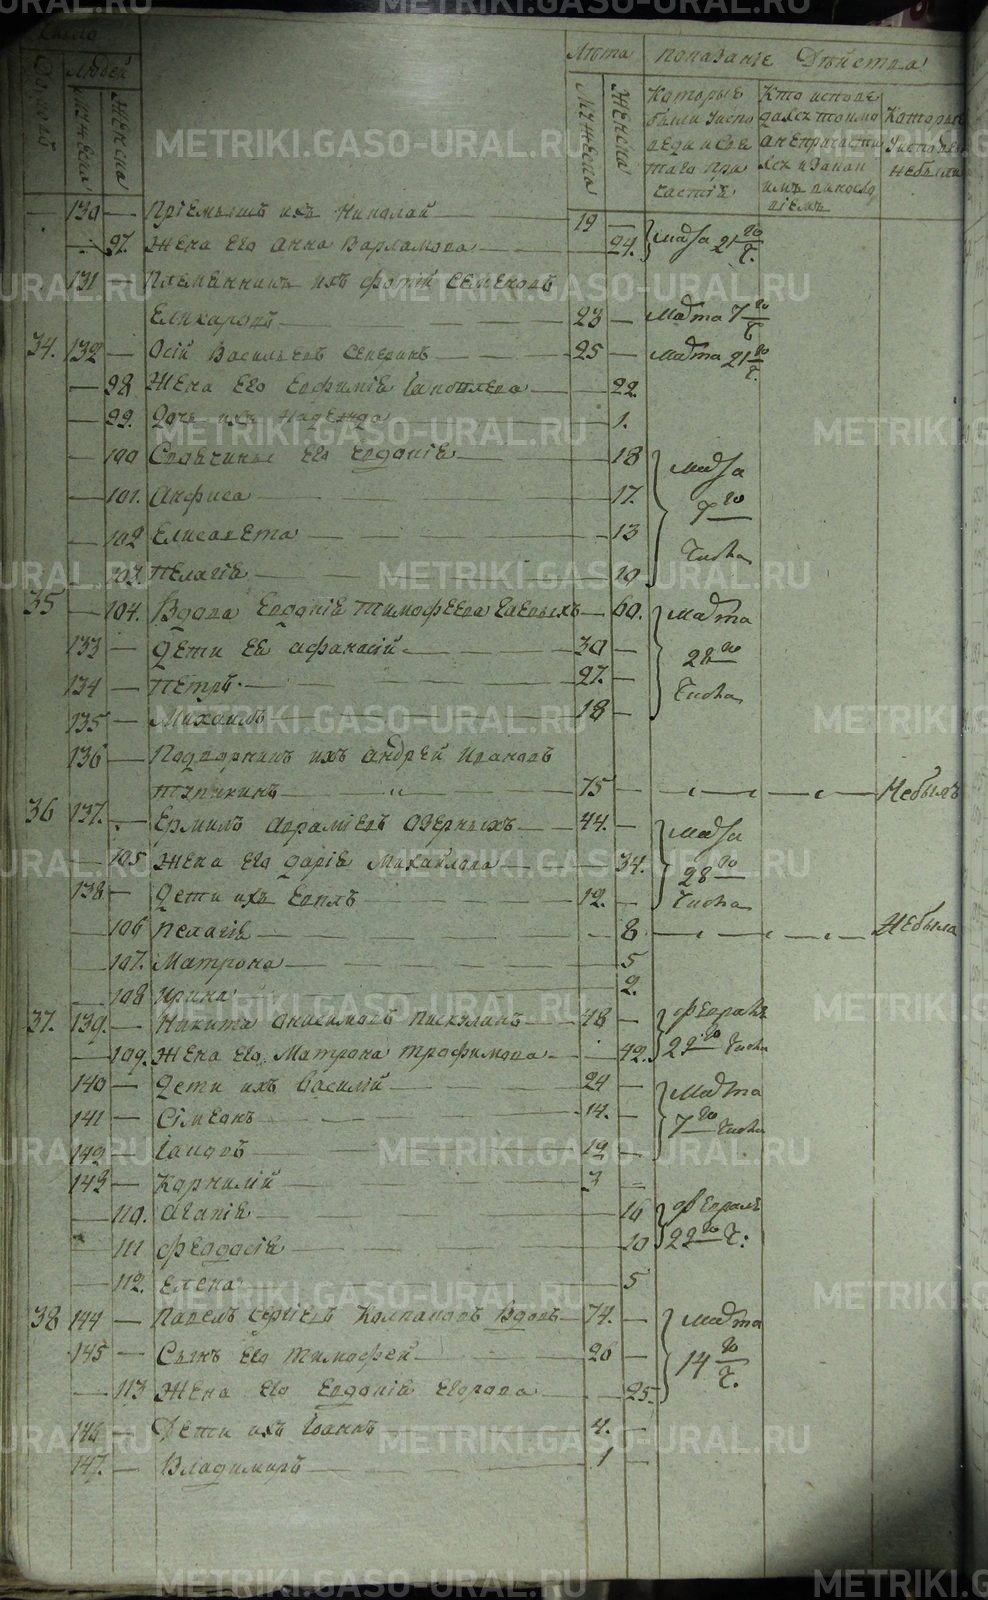 Число
Людей
Дворовъ
Мужеска
Женска
Лѣта
Мужеска
Женска
Показаніе Дѣйства
Которые были у исповеди и святаго причастія
Кто исповедался токмо а не причастился и за каким винословіемъ
Которые у исповеди не были
— 130 — Пріемышъ ихъ Николай — 19 —
97. Жена его Анна Варламова — 24. Марта 21го ч.
131 — Племянникъ ихъ Фотій Семеновъ
— 23 — Марта 7го ч.
34. 132 — Васильевъ — 25 — Марта 21го ч.
— 98 Жена его Евфимія — 22.
— 99. Дочь ихъ Надежда — 1.
— 100 его Евдокія — 18 Марта
— 101. Анфиса — 17. 7го
— 102 Елисавета — 13 Числа
— 103. Пелагія — 10
35 — 104. Вдова Евдокія Тимофеева — 60. Марта
133 — Дети ея Афанасій — 30 — 28го
134 — Петръ — 27. — Числа
135 — Михаилъ — 18 —
136 — Подворникъ ихъ Андрей Ивановъ
— 75 — Небылъ
36 137. Ермилъ Авраміевъ Озерныхъ — 44. — Марта
— 105 Жена его Дарія Михайлова — 34. 28го
138 — Дети ихъ — 12. — Числа
— 106 Пелагія — 8 — Небыла
— 107. Матрона — 5
— 108 Ирина — 2.
37. 139. — Никита Анисимовъ — 48 — Февраля
— 109. Жена его Матрона Трофимова — 42. 22го Числа
140 — Дети ихъ Василій — 24 — Марта
141 — Сімеонъ — 14. — 7го Числа
142 — Іаковъ — 12 —
143 — Корнилій — 3 —
— 110. Агапія — 16 Февраля
— 111 Феодосія — 10 22го ч:
— 112. Елена — 5
38 144 — Павелъ Сергіевъ Колмаковъ Вдовъ — 74. — Марта
145 — Сынъ его Тимофей — 26 — 14го
— 113 Жена его Евдокія — 25. ч.
146 — Дети ихъ Іоаннъ — 4. —
147. — Владимиръ — 1 —
METRIKI.GASO-URAL.RU